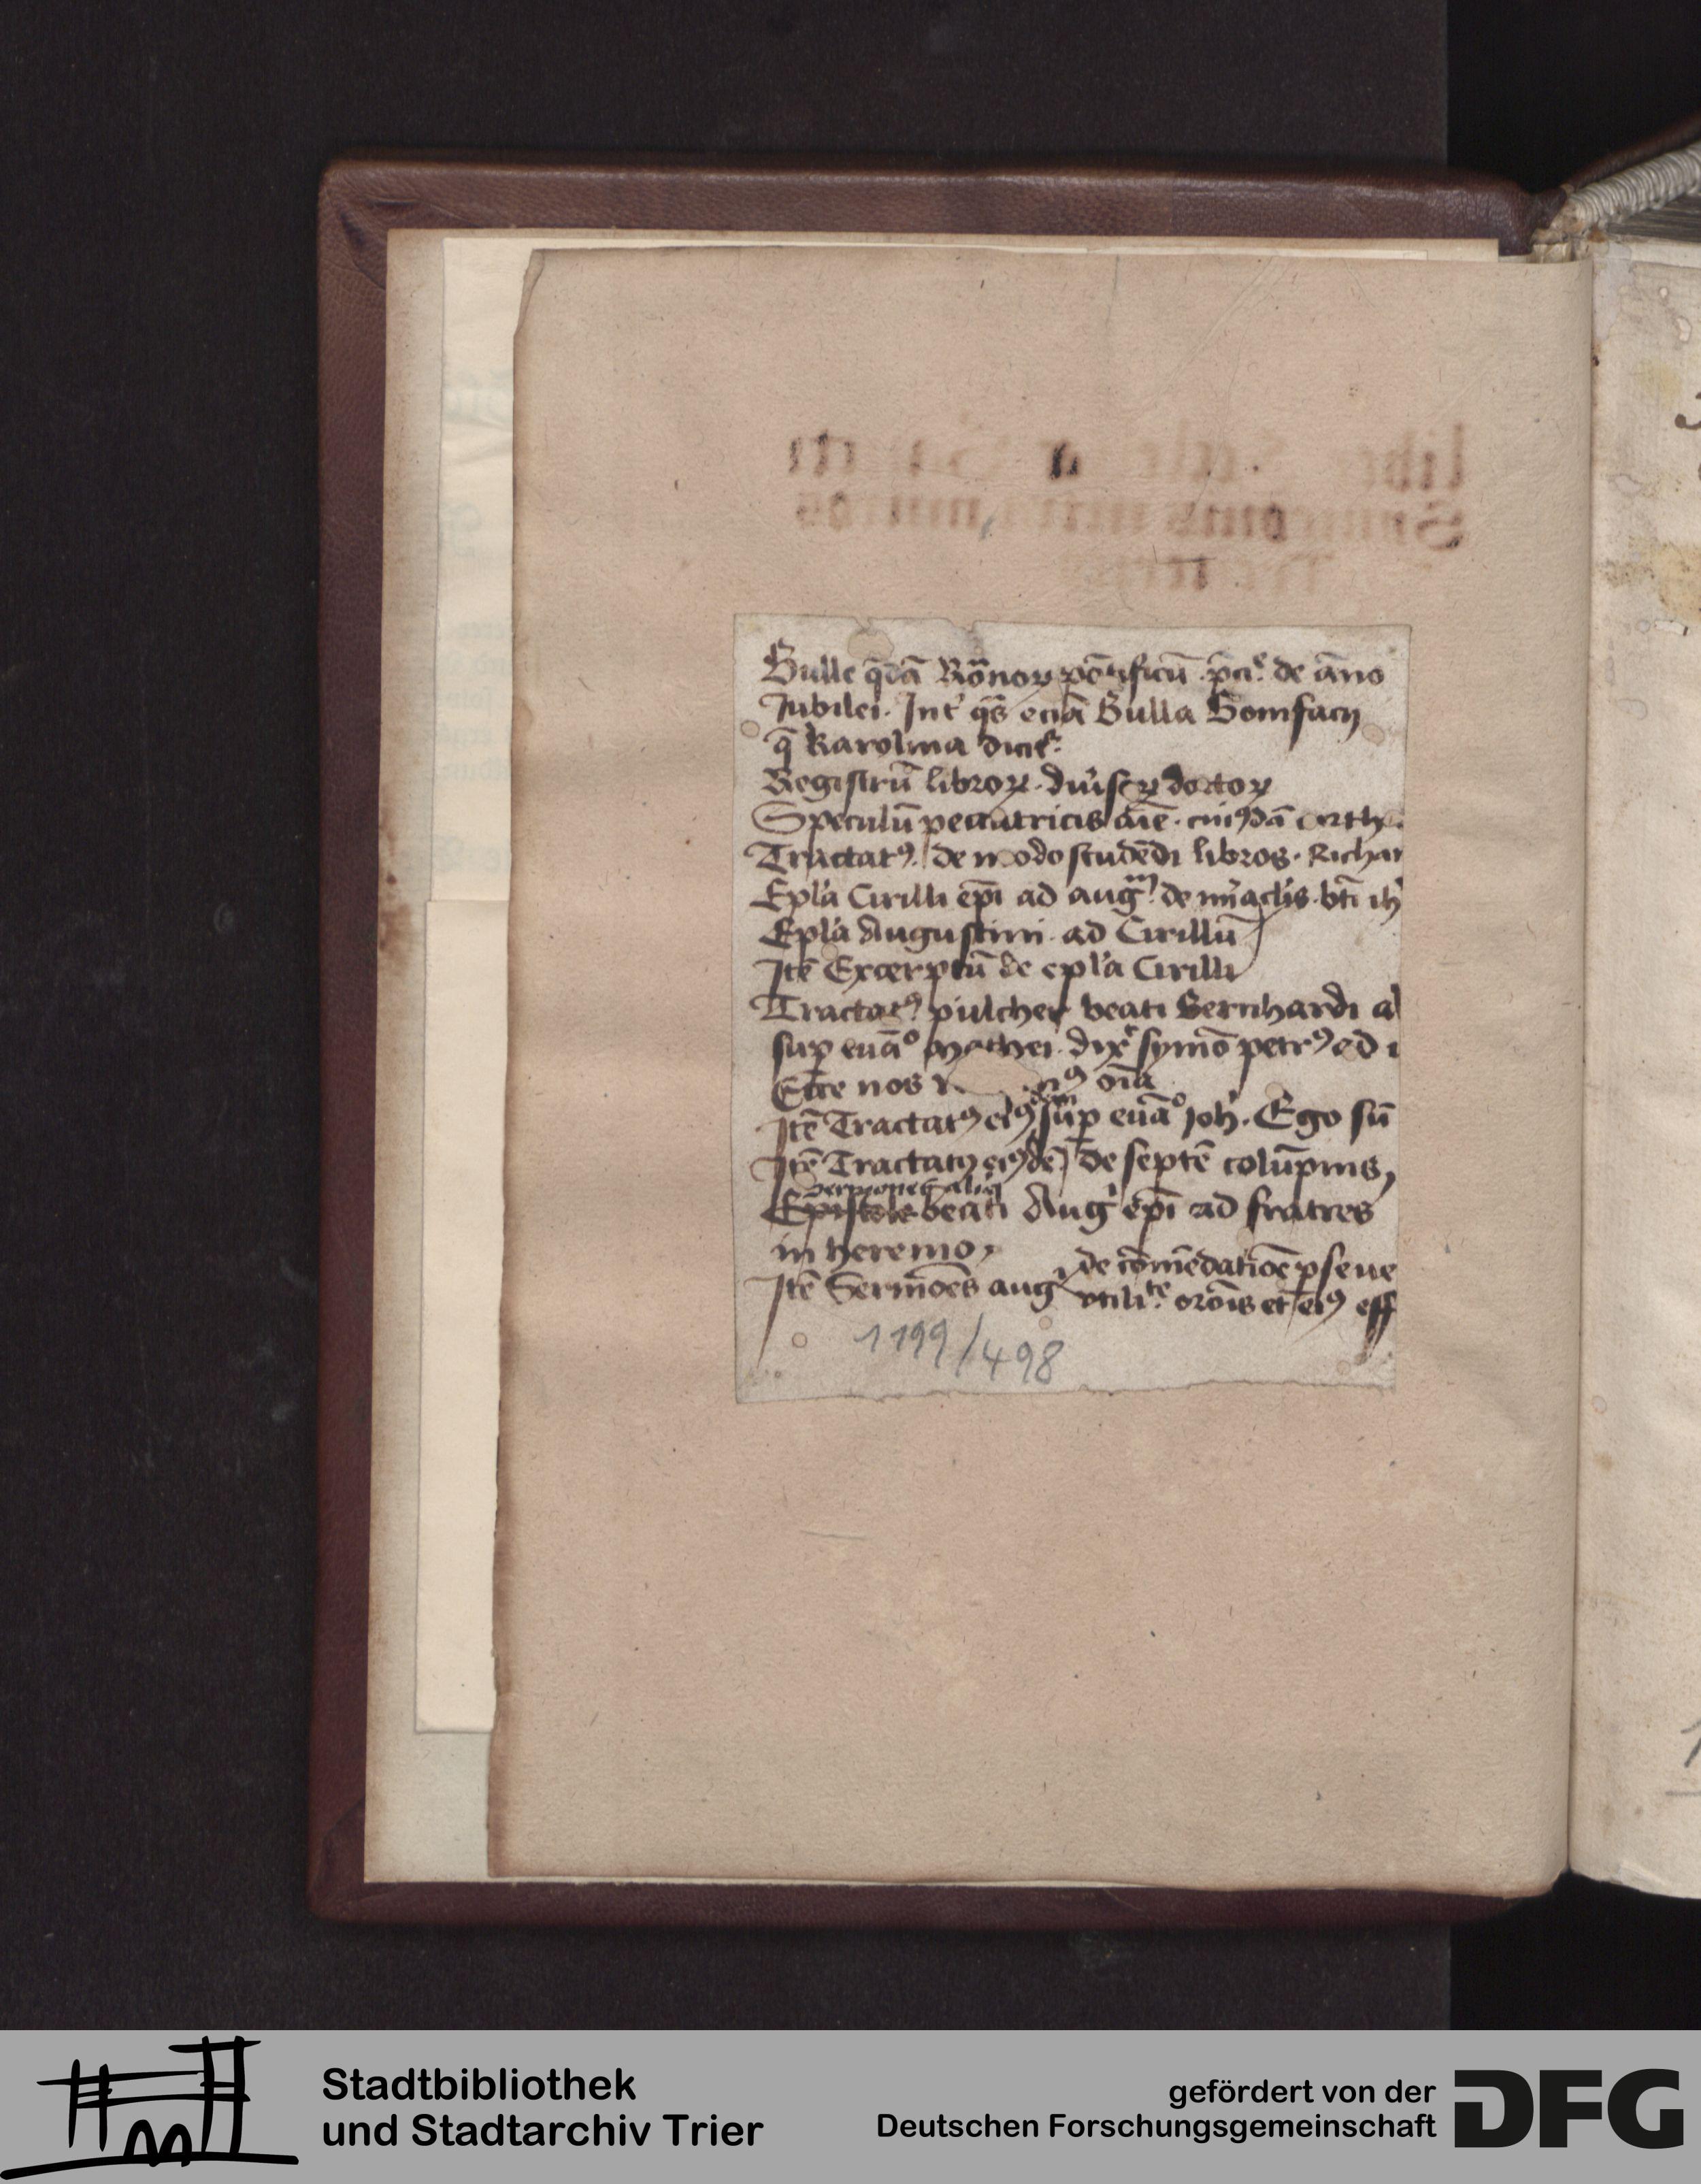 Bulle q̄dā Rōnoꝝ pōtificū p̄ciᵉ de āno
Jubilei. Int' q̄s eciā Bulla Bonifacij
q̄ Karolina dicit᷑.
Registrū libroꝝ diu'soꝝ doctoꝝ
Speculū peccatricis aīe. cuiꝰdā
Tractatꝰ de modo studēdi libros. Richar
Ep'la Cirilli ep̄i ad augᵐ de mi'aclis btī ih'
Ep'la Augustini ad Cirillū
Jtē Excerptū de ep'la Cirilli
Tractatꝰ pulcher beati Bernhardi ab
sup euāᵒ Mathei. dix' symō petrꝰ ad i
Ecce nos oīa
Jtē Tractatꝰ eiꝰdem sup euāᵒ Joh'. Ego sū
Jtē Tractatꝰ eiꝰdē de septē colūpnis
Sermones aliq
Epistole beati Aug' ep̄i ad fratres
in heremo
Jtē Sermōes aug' de cōmēdatiōe pseue
vtilitᵉ orōis et eiꝰ eff
1199/498
Stadtbibliothek
und Stadtarchiv Trier
gefördert von der
Deutschen Forschungsgemeinschaft
DFG